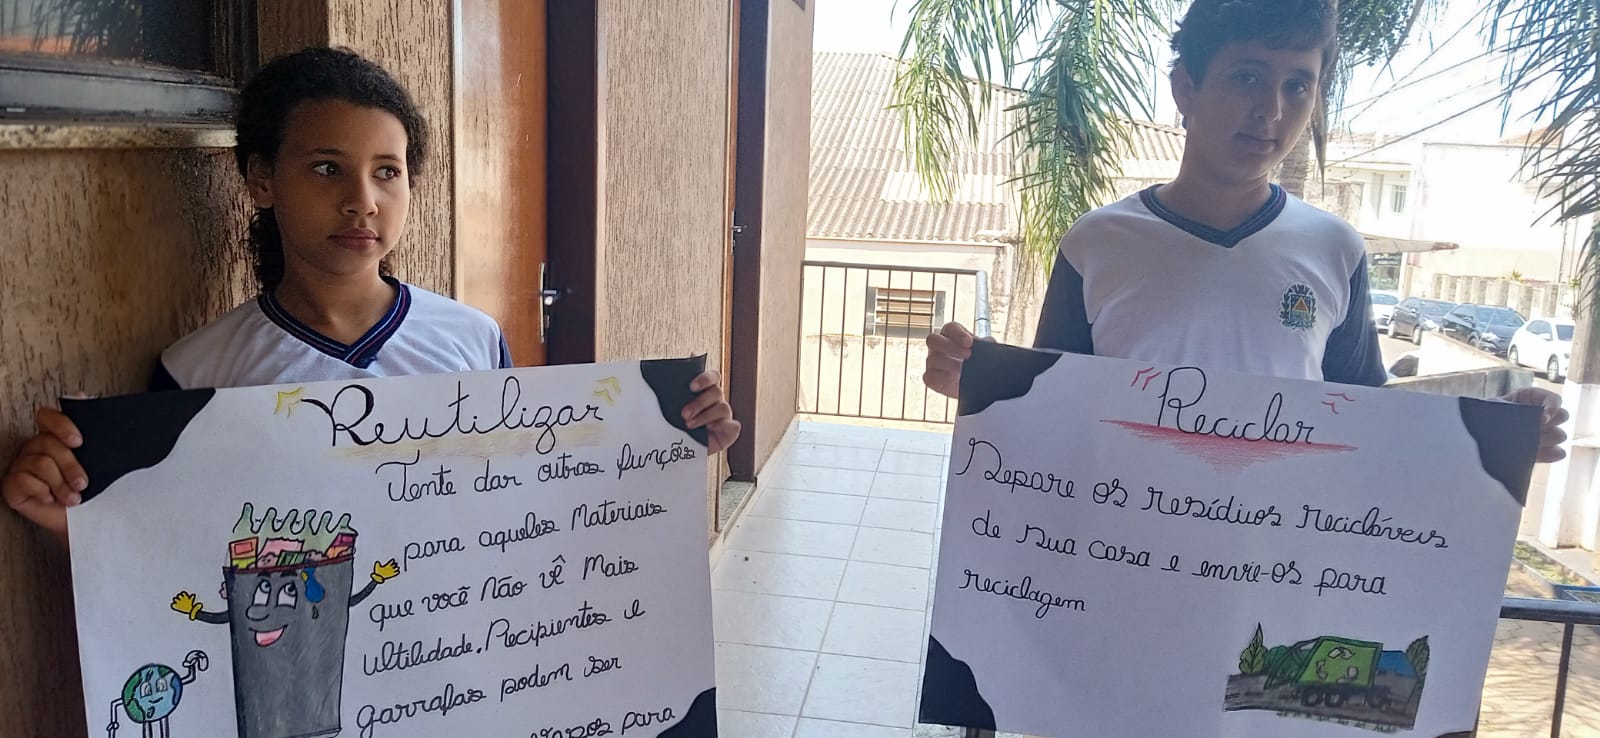 Reutilizar
Tente dar outras funções
para aqueles Materiais
que você não vê Mais
ultilidade. Recipientes e
garrafas podem ser
vasos para
Reciclar
Separe os resíduos recicláveis
de sua casa e envie-os para
reciclagem